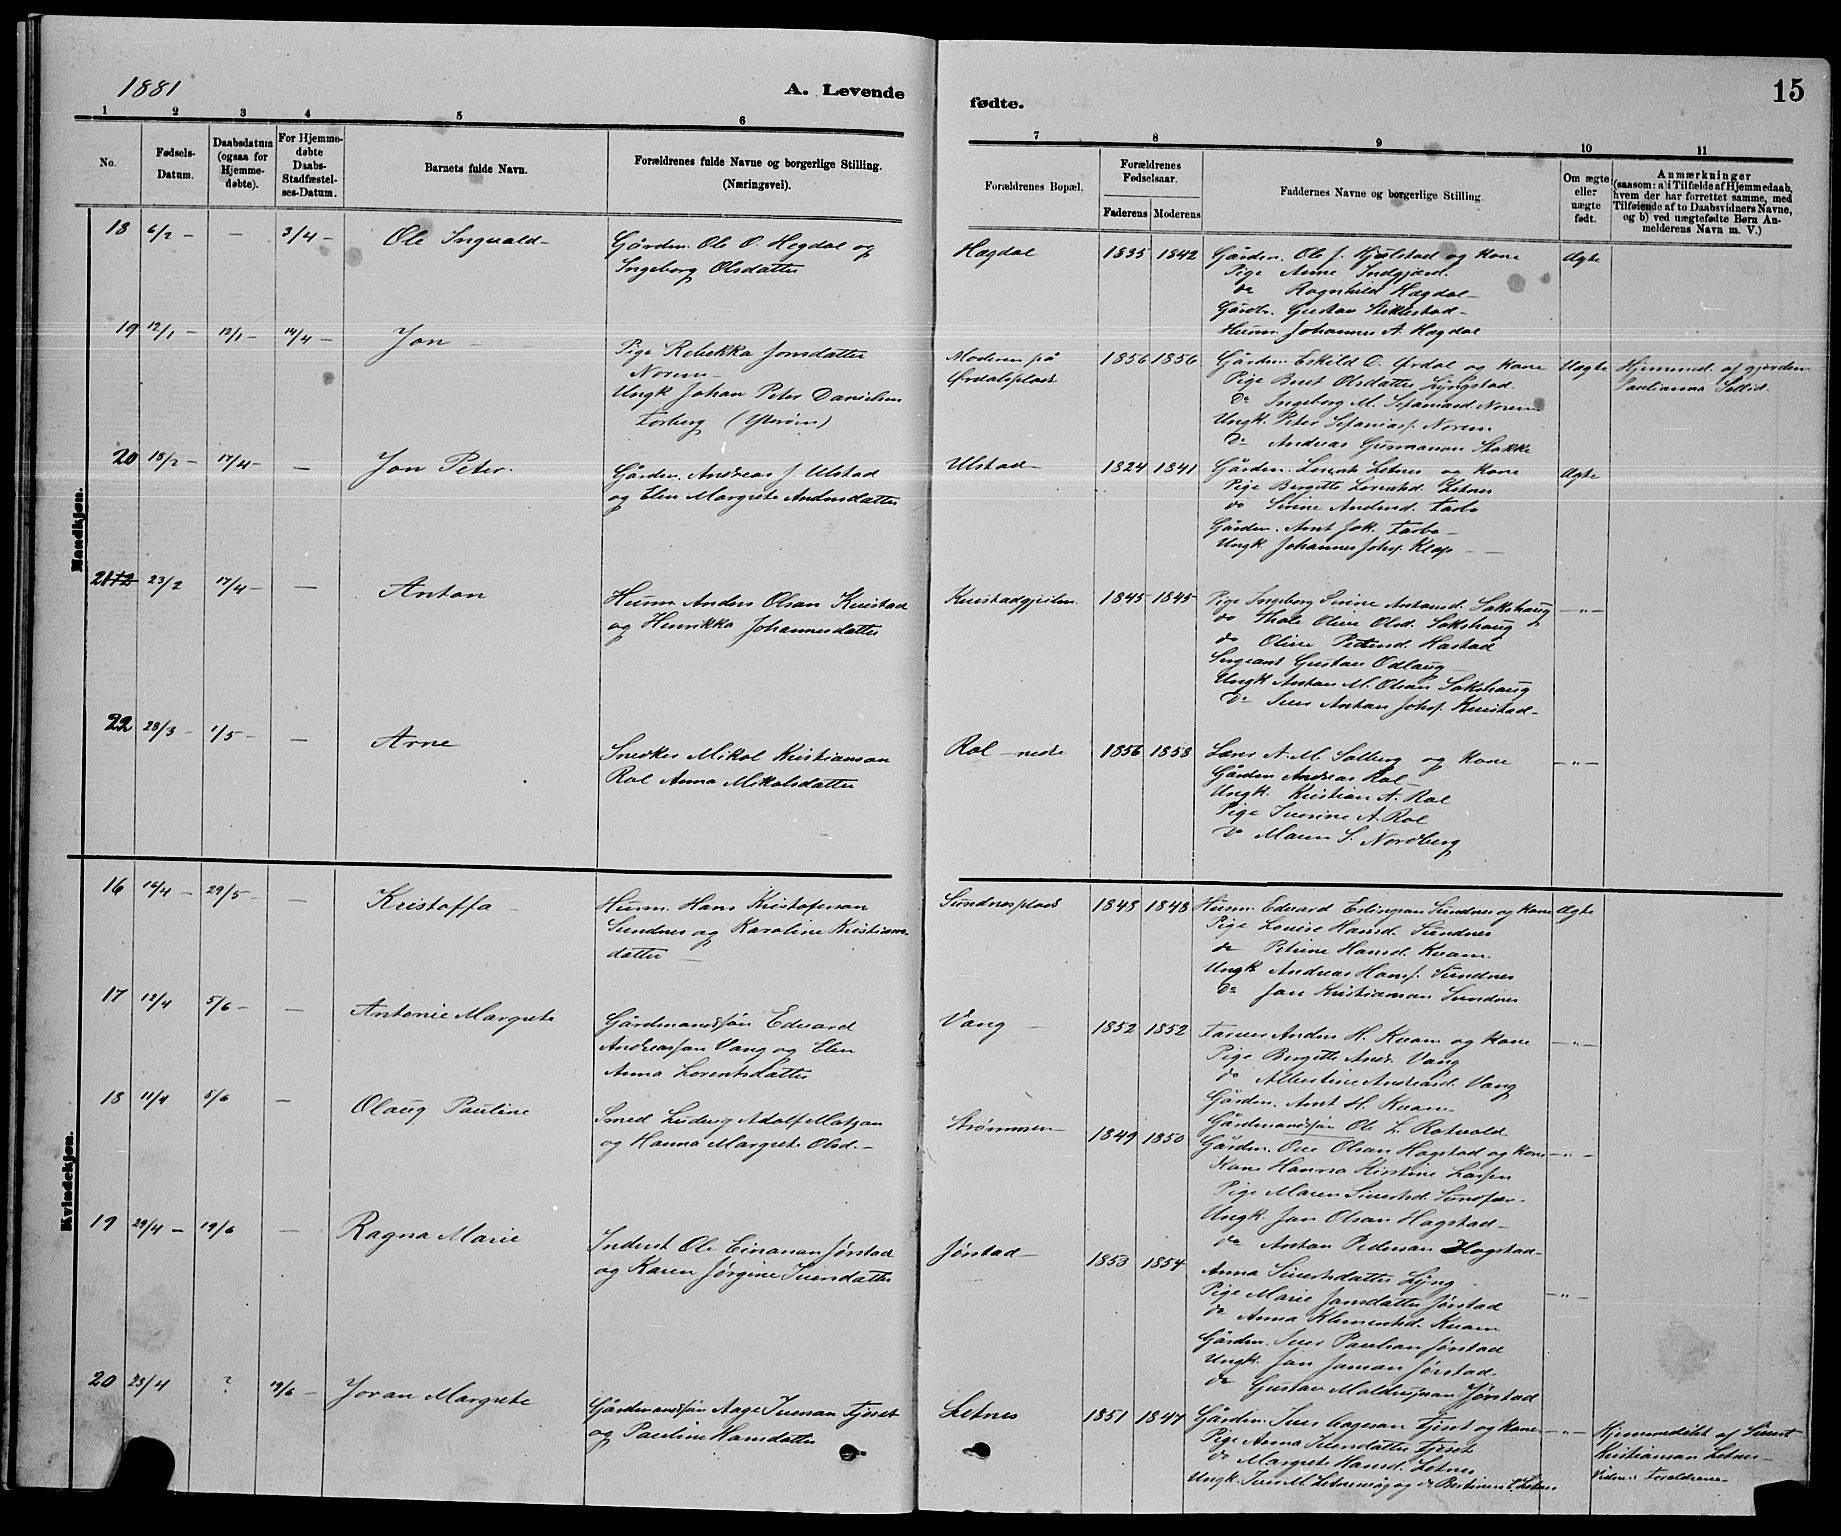 1881
A. Levende
fødte.
15
1 2 3 4 5 6
7 8 9 10 11
No.
Fødsels-Datum.
Daabsdatum (ogsaa for Hjemme-døbte).
For Hjemme-døbte Daabs-Stadfæstel-ses-Datum.
Barnets fulde Navn.
Forældrenes fulde Navne og borgerlige Stilling.
(Næringsvei).
Forældrenes Bopæl.
Forældrenes Fødselsaar.
Faderens Moderens
Faddernes Navne og borgerlige Stilling.
Om ægte eller uægte født.
Anmærkninger
(saasom: a) i Tilfælde af Hjemmedaab,
hvem der har forrettet samme, med
Tilføiende af to Daabsvidners Navne,
og b) ved uægtefødte Børn An-
melderens Navn m. V.)
Mandkjøn.
18 6/2 - - 3/4 - Ole Ingvald -
Gårdm. Ole O. Hegdal og
Ingeborg Olsdatter
Hegdal 1835 1842
Gårdm. Ole J. Hjelstad og Kone
Pige Anne
do Ragnhild Hegdal -
Gårdbr. Gustav Stiklestad -
Husm. Johannes A. Hegdal
Ægte
19 12/1 - 12/1 - 14/4 - Jon -
Pige Rebekka Jonsdatter
Norem -
Ungk. Johan Peter Danielsen
Forberg (Ytterøen)
Moderen på
Ørdalsplads
1856 1856
Gårdm. Eskild O. Ørdal og Kone
Pige Berit Olsdatter Lyngstad.
Do Ingeborg M. Sefaniasd. Norem
Ungk. Peter Sefaniasf. Norem
Do Andreas Stokke
Uægte
Hjemmed. af gjordem.
Paulianna
20 18/2 - 17/4 - - Jon Peter.
Gårdm. Andreas J. Ulstad
og Elen Margrete Andersdatter
Ulstad - 1824 1841
Gårdm. Letnes og Kone
Pige Bergitte Lorentsd. Letnes
do Sirine Andersd. Tarbo
Gårdm. Arnt Joh. Tarbo -
Ungk. Johannes Johsf. Klep -
Ægte
21 23/2 17/4 - - Anton
Husm. Anders Olsen Kvistad
og Henrikka Johannesdatter
1845 - 1845 -
Pige Ingeborg Sirine Antonsd. Sakshaug
do Olive Olsd. Sakshaug
do Oline Petersd. Hastad
Sergeant Gustav Odlaug
Ungk. Anton M. Olsen Sakshaug
Do Iver Anton Johsf. Kvistad -
- „ -
22 28/3 - 1/5 - - Arne
Snedker Mikal Kristiansen
Rol Anna Mikalsdatter
Rol - nedre 1856 1858
A. M. Salberg og Kone
Gårdm Andreas Rol -
Ungk. Kristian A. Rol
Pige A. Rol
Do Maren S. Nordberg
- „ -
Kvindekjøn.
16 16/4 - 29/5 - - Kristoffa -
Husm. Hans Kristofersen
Sundnes og Karoline Kristians-
datter -
Sundnesplads 1848 1848
Husm. Edvard Erlingsen Sundnes og Kone
Pige Lovise Hansd. Sundnes
do Petrine Hansd. Kvam
Ungk. Andreas Hansf. Sundnes
Do Jon Kristiansen Sundnes
Ægte
17 13/4 5/6 - - Antonie Margrete
Gårdmandssøn Edvard
Andreassen Vang og Elen
Anna Lorentsdatter
Vang - 1852 1852
Anders H. Kvam og Kone
Pige Bergitte Andr. Vang
do Albertine Andreasd. Vang
Gårdm. Arnt H. Kvam -
Gårdmandssøn Ole L. Rotvold
- „ -
18 11/4 5/6 - Olaug Pauline
Smed Ludvig Adolf Matzen
og Hanna Margrete Olsd. -
Strømmen 1849 1850
Gårdm. Ove Olsen Hagstad og Kone
Kone Hanna Kirstine Larsen
Pige Maren Sivertsd. Sundfær.
Ungk. Jon Olsen Hagstad -
do Anton Pedersen Hagstad -
- „ -
19 29/4 - 19/6 - Ragna Marie
Inderst Ole Einarsen Jørstad
og Karen Jørgine Iversdatter
Jørstad 1853 1854
Anna Sivertsdatter Lyng
Pige Marie Jonsdatter Jørstad
do Anna Klementsd. Kvam
Gårdm. Iver Paulsen Jørstad
Ungk. Jon Jonsen Jørstad -
do Gustav Jørstad
- „ -
20 23/4 ? 19/6 - Joran Margrete
Gårdmandssøn Aage Iversen Fjeset
og Pauline Hansdatter
Letnes 1851 1847
Gårdm. Iver Aagesen Fjeset og Kone
Pige Anna Iversdatter Fjeset
do Margrete Hansd. Letnes
Ungk. Iver M. Letnes og
- „ -
Hjemmedøbt af Sivert
Kristiansen Letnes -
Vidner: Forældrene